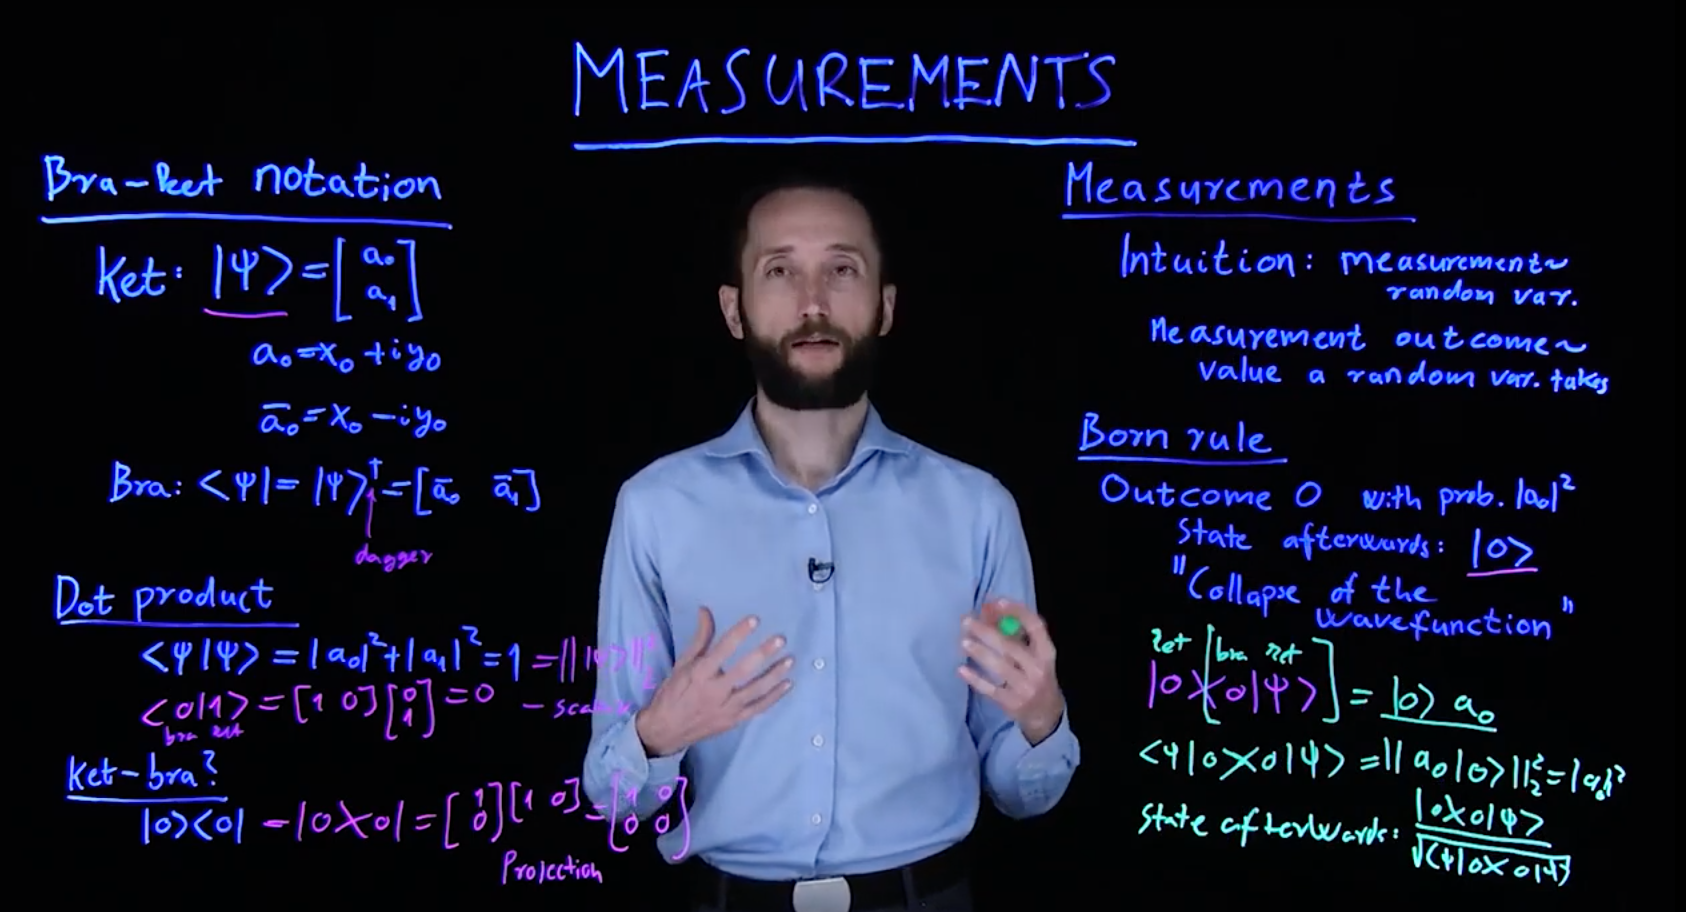 MEASUREMENTS
Bra-ket notation
Ket: |Ψ⟩ = [a₀ a₁]
a₀ = x₀ + iy₀
a̅₀ = x₀ − iy₀
Bra: <Ψ| = |Ψ⟩† = [a̅₀ a̅₁]
dagger
Dot product
<Ψ|Ψ> = |a₀|² + |a₁|² = 1 = || |Ψ⟩ ||₂²
<0|1> = [1 0] [0 1] = 0 –
bra ket
Ket-bra?
|0><0| – |0X0| = [1 0] [1 0] = [1 0 0 0]
Projection
Measurements
Intuition: measurement ~
random var.
Measurement outcome ~
value a random var. takes
Born rule
Outcome 0 with prob. |a₀|²
State afterwards: |0>
"Collapse of the
wavefunction"
ket [bra ket
|0X0|Ψ>] = |0> a₀
<Ψ|0X0|Ψ> = ||a₀|0>||₂² = |a₀|²
State afterwards: |0X0|Ψ>
√<Ψ|0X0|Ψ>